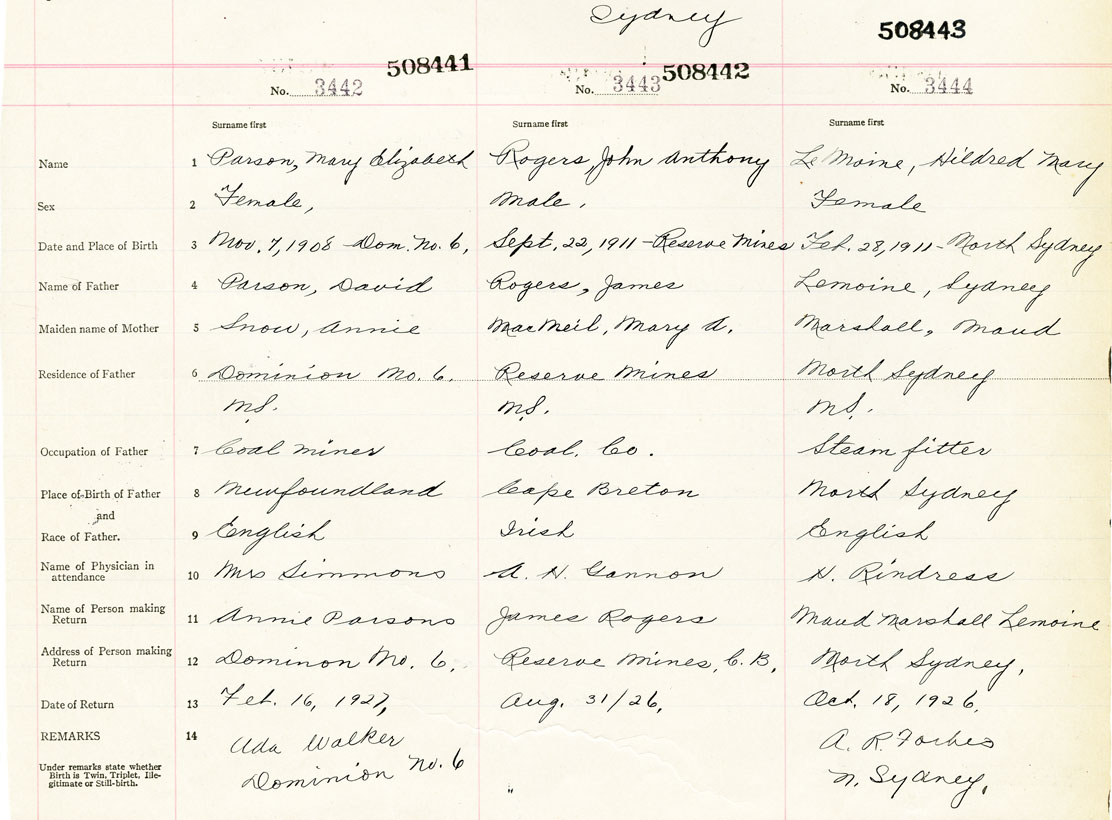 Sydney
508443
508441
508442
No. 3442
No. 3443
No. 3444
Surname first
Surname first
Surname first
Name 1 Parson, Mary Elizabeth Rogers, John Anthony LeMoine, Hildred Mary
Sex 2 Female, Male, Female
Date and Place of Birth 3 Nov. 7, 1908 - Dom. No. 6, Sept. 22, 1911 - Reserve Mines Feb. 28, 1911 - North Sydney
Name of Father 4 Parson, David Rogers, James Lemoine, Sydney
Maiden name of Mother 5 Snow, Annie MacNeil, Mary A. Marshall, Maud
Residence of Father 6 Dominion No. 6. Reserve Mines North Sydney
N.S. N.S. N.S.
Occupation of Father 7 Coal miner Coal. Co. Steam fitter
Place of Birth of Father 8 Newfoundland Cape Breton North Sydney
and
Race of Father. 9 English Irish English
Name of Physician in
attendance 10 Mrs Simmons A. H. Gannon H. Rindress
Name of Person making
Return 11 Annie Parsons James Rogers Maud Marshall Lemoine
Address of Person making
Return 12 Dominon No. 6. Reserve Mines, C.B. North Sydney,
Date of Return 13 Feb. 16, 1927, Aug. 31/26, Oct. 18, 1926.
REMARKS 14 Ada Walker A. R. Forbes
Under remarks state whether
Birth is Twin, Triplet, Ille-
gitimate or Still-birth.
Dominion No. 6 " N. Sydney.